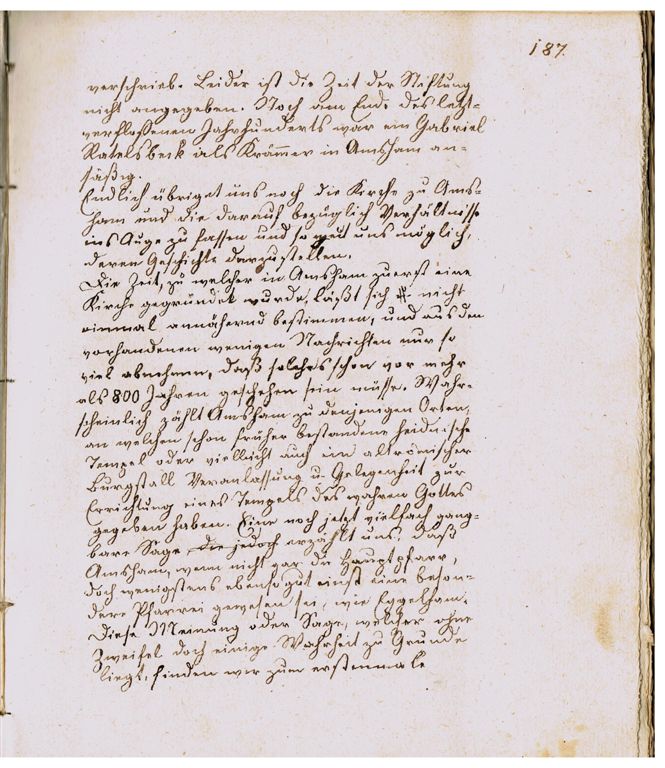 187.
verschrieb. Leider ist die Zeit der Stiftung
nicht angegeben. Noch am Ende des letzt-
verfloßenen Jahrhunderts war ein Gabriel
Ratelsbeck als Krämmer in Amsham an-
säßig.
Endlich übriget uns noch die Kirche zu Ams-
ham und die darauf bezüglich Verhältnisse
ins Auge zu fassen und so weit uns möglich,
deren Geschichte darzustellen.
Die Zeit, zu welcher in Amsham zuerst eine
Kirche gegründet wurde, läßt sich nicht
einmal annähernd bestimmen, und aus den
vorhandenen wenigen Nachrichten nur so
viel abnehmen, daß solches schon vor mehr
als 800 Jahren geschehen sein müsse. Wahr-
scheinlich zählt Amsham zu denjenigen Orten,
an welchen schon früher bestandene heidnische
Tempel oder vielleicht auch ein altrömischer
Burgstall Veranlassung u. Gelegenheit zur
Errichtung eines Tempels des wahren Gottes
gegeben haben. Eine noch jetzt vielfach gang-
bare Sage die jedoch erzählt uns, daß
Amsham, wenn nicht gar die Hauptpfarr,
doch wenigstens ebenso gut einst eine beson-
dere Pfarrei gewesen sei, wie Eggelham.
Diese Meinung oder Sage, welcher ohne
Zweifel doch einige Wahrheit zu Grunde
liegt, finden wir zum erstenmale